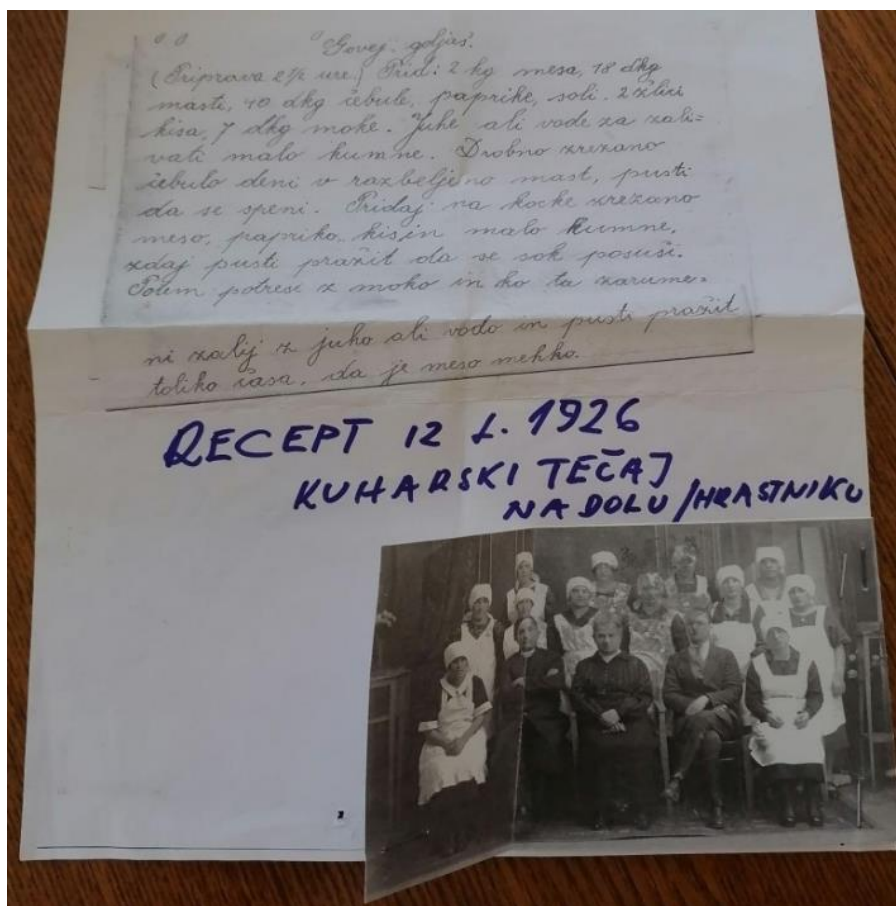 Govej. goljaš.
(Priprava 2½ ure.) Prid: 2 kg mesa, 18 dkg
masti, 40 dkg čebule, paprike, soli. 2 žlici
kisa, 7 dkg moke. Juhe ali vode za zali=
vati malo kumne. Drobno zrezano
čebulo deni v razbeljeno mast, pusti
da se speni. Pridaj na kocke zrezano
meso, papriko, kis, in malo kumne,
zdaj pusti pražit da se sok posuši.
Potem potresi z moko in ko ta zarume=
ni zalij z juho ali vodo in pusti pražit
toliko časa, da je meso mehko.
RECEPT IZ L. 1926
KUHARSKI TEČAJ
NA DOLU/HRASTNIKU